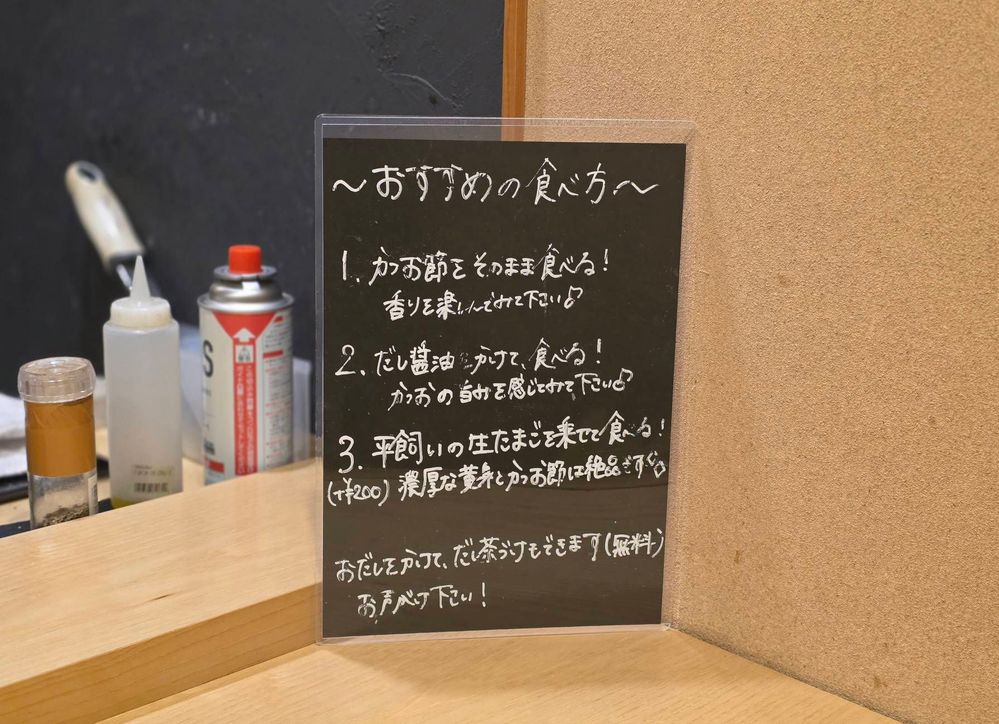 ～おすすめの食べ方～
1. かつお節をそのまま食べる！
香りを楽しんでみて下さい♪
2. だし醤油をかけて、食べる！
かつおの旨みを感じてみて下さい♪
3. 平飼いの生たまごを乗せて食べる！
(+¥200) 濃厚な黄身とかつお節は絶品です♪
おだしをかけて、だし茶づけもできます(無料)
お声がけ下さい！
S